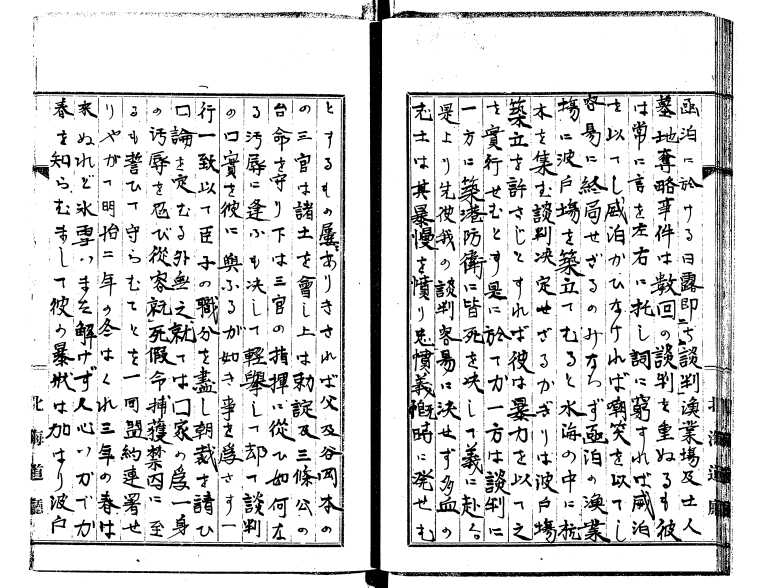 函泊に於ける日露即ち談判漁業場及土人
墓地奪略事件は数回の談判を重ぬるも彼
は常に言を左右に托し詞に窮すれば威泊
を以てし威泊かひなければ嘲笑を以てし
容易に終局せざるのみならず函泊の漁業
場に波戸場を築立てむると氷海の中に杭
木を集む談判决定せざるかぎりは波戸場
築立を許さじとすれば彼は暴力を以て之
を実行せむとす是に於てか一方は談判に
一方に築港防衛に皆死を决して義に赴く
是より先彼我の談判容易に决せず多血の
志士は其暴慢を憤り忠憤義慨時に発せむ
北海道廳
とするもの屡々ありきされば父及谷岡本の
の三官は諸士を會し上は勅諚及三條公の
台命を守り下は三官の指揮に從ひ如何な
る汚辱に逢ふも决して輕擧して却て談判
の口實を彼に與ふるが如き事を為さす一
行一致以て臣子の職分を盡し朝裁を請ひ
口論を定むる外無之就ては口家の為一身
の汚辱を忍び從容就死假令捕獲禁囚に至
るも誓ひて守らむことを一同盟約連署せ
りやがて明治二年の冬はくれ三年の春は
来ぬれど氷雪いまだ解けず人心いかでか
春を知らむまして彼の暴状は加はり波戸
北海道廳